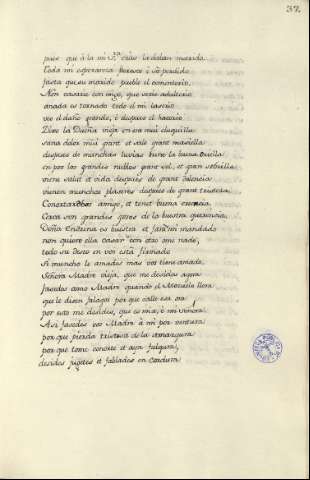 37.
pues que á la mi Sra. cras la dalan marido.
Toda mi esperanza perece é yo perdido
fasta que su marido pueble el cementerio
Non casaria con migo, que seria adulterio
anada es tornado todo el mi lacerio
veo el daño grande, é despues el hacerio
Dixo la Dueña vieja en ora muy chiquilla
sana dolor muy grant et sale grant masiella
despues de munchas luvias viene la buena orilla
en pos los grandes nublos grant sol, et gran sobrilla
viene salut et vida despues de grant dolencia
vienen munchos plaseres despues de grant tristesa
Conortadvos amigo, et tened buena creencia
Cerca son grandes goses de la buestra querencia
Doña Endrina es buestra et fará mi mandado
non quiere ella casar con otro ome nado,
todo su deseo en vos está firmado
Si muncho le amades mas vos tiene amado.
Señora Madre vieja, que me desides agora
fasedes como Madre quando el Moçuelo llora
que le disen falagos por que calle esa ora
por esto me desides, que es mia, é mi Señora
Asi fasedes vos Madre á mi por ventura
por que pierda tristesa de la amargura
por que tome conorte et aya folgura,
desides juguetes et fablades en cordura